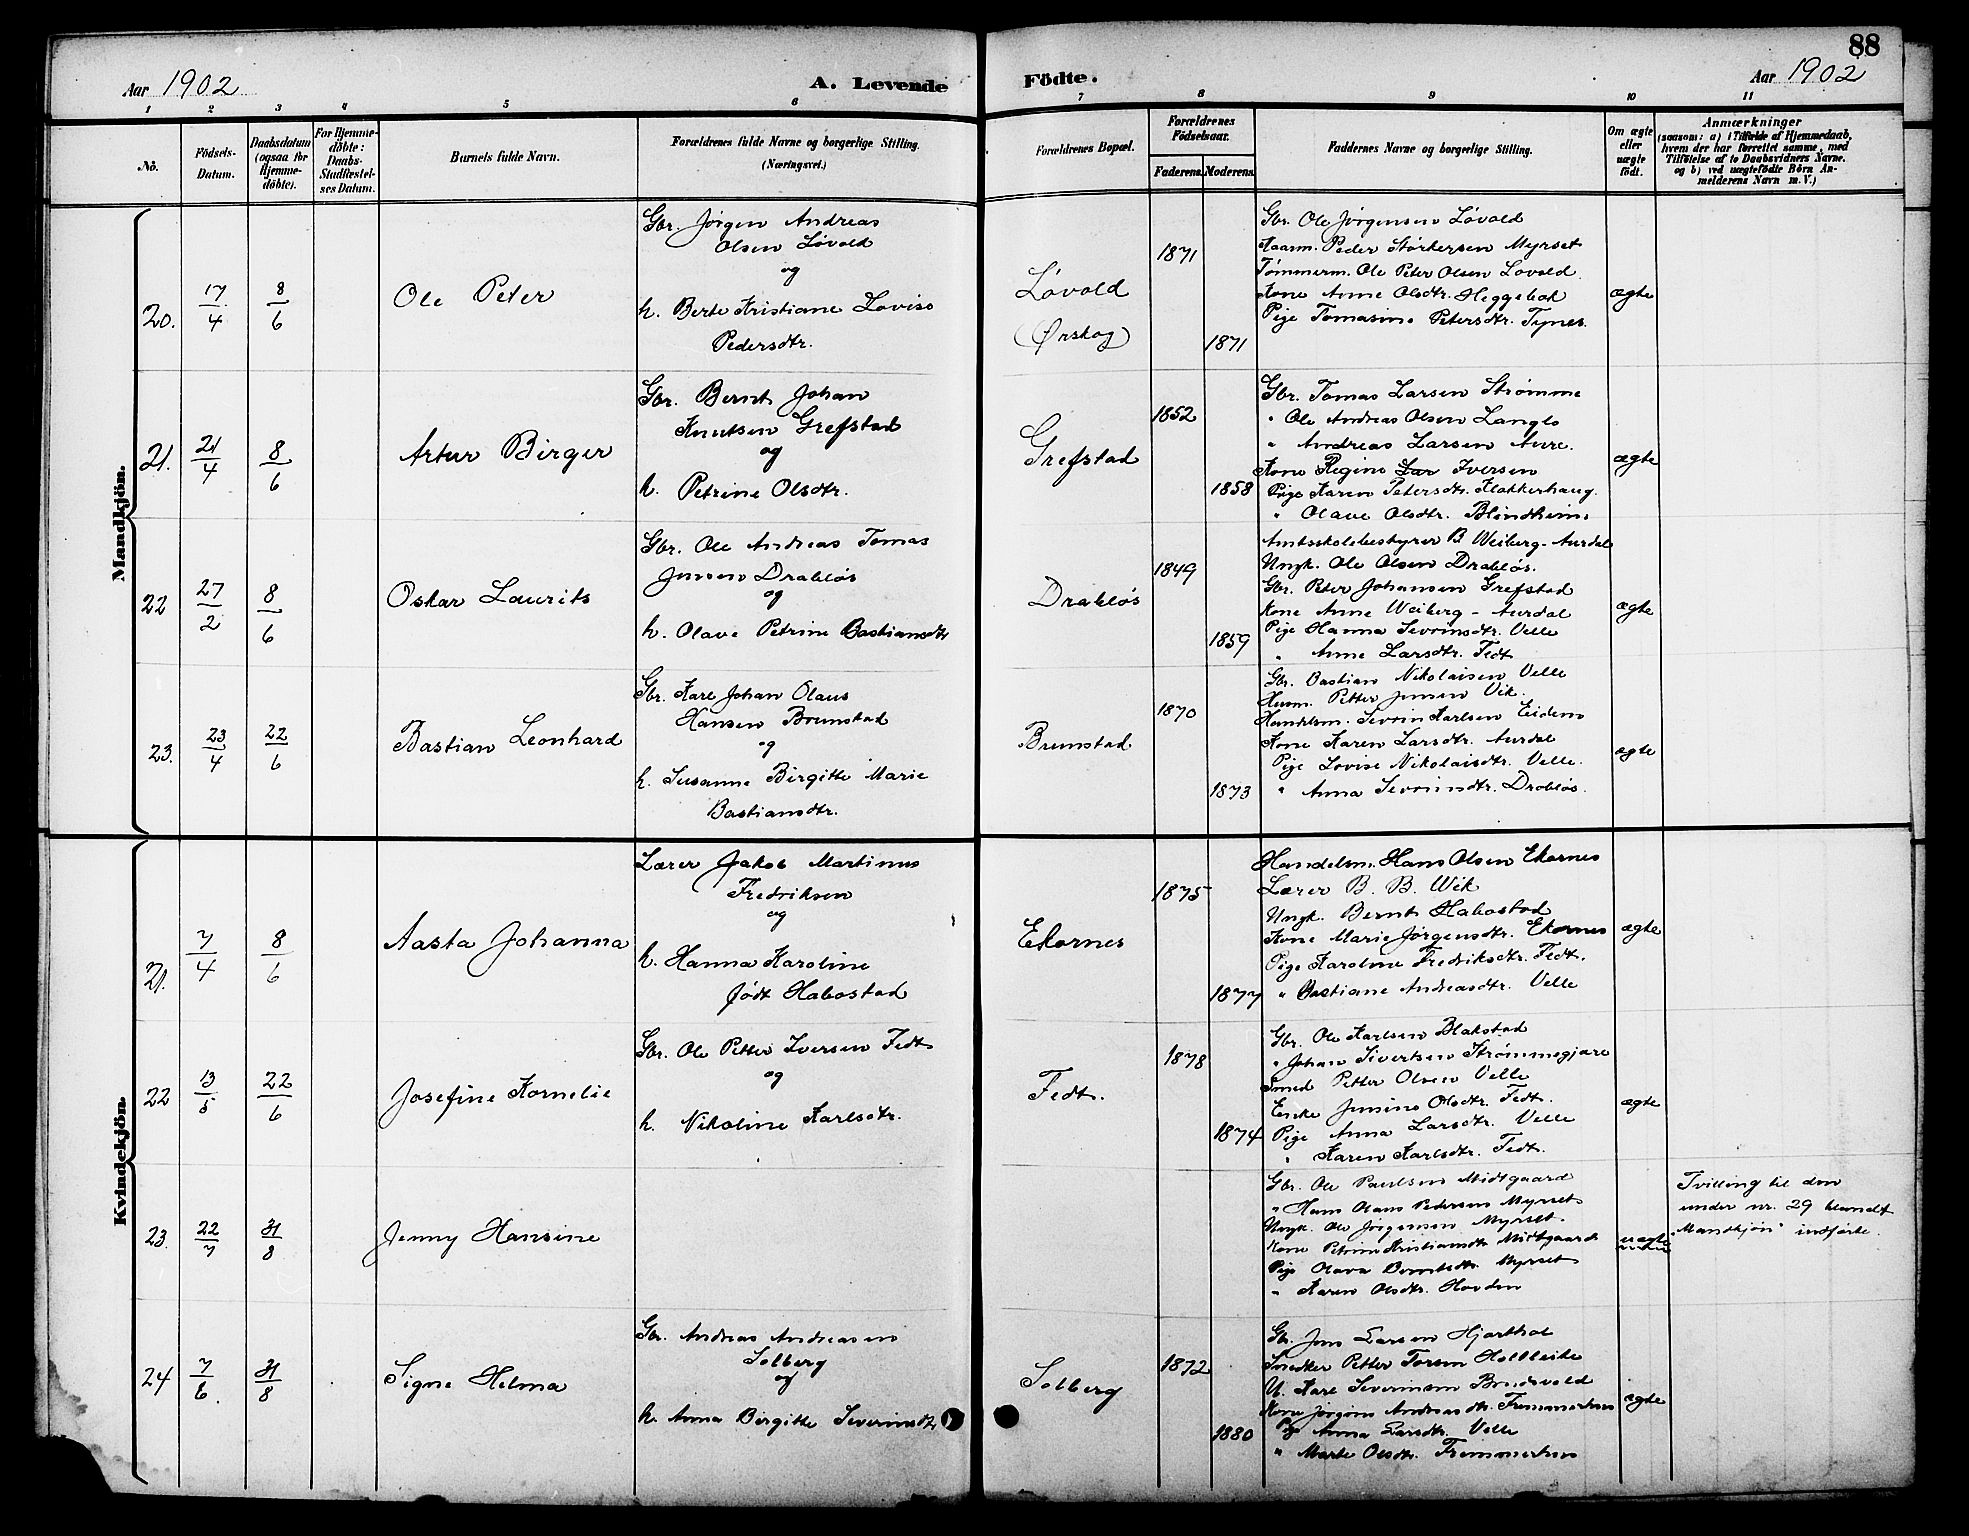 88
Aar 1902
A. Levende
Födte.
Aar 1902
1 2 3 4 5 6 7 8 9 10 11
No.
Födsels-
Datum.
Daabsdatum
(ogsaa for
Hjemme-
döbte).
For Hjemme-
döbte:
Daabs-
Stadfæstel-
ses Datum.
Barnets fulde Navn.
Forældrenes fulde Navne og borgerlige Stilling.
(Næringsvei.)
Forældrenes Bopæl.
Forældrenes
Födselsaar.
Faderens. Moderens.
Faddernes Navne og borgerlige Stilling.
Om ægte
eller
uægte
födt.
Anmærkninger
(saasom: a) i Tilfælde af Hjemmedaab,
hvem der har forrettet samme, med
Tilföielse af to Daabsvidners Navne.
og b) ved uægtefödte Börn An-
melderens Navn m. V.)
Mandkjön.
20.
17/4
8/6
Ole Peter
Gbr. Jörgen Andreas
Olsen Lövold
og
h. Berte Kristiane Lovise
Pedersdtr.
Lövold
(Ørskog)
1871
1871
Gbr. Ole Jörgensen Lövold
Kaarm. Peder Störkersen Myrset
Tömmerm. Ole Peter Olsen Lövold
Kone Anne Olsdtr. Heggebak
Pige Tomasine Petersdtr. Tynes.
ægte
21.
21/4
8/6
Artur Birger
Gbr. Bernt Johan
Knutsen Grefstad
og
h. Petrine Olsdtr.
Grefstad
1852
1858
Gbr. Tomas Larsen Strömme
" Ole Andreas Olsen Langlo
" Andreas Larsen Aure.
Kone Regine Lar Iversen
Pige Karen Petersdtr. Klokkerhaug.
" Olave Olsdtr. Blindheim.
ægte
22
27/2
8/6
Oskar Laurits
Gbr. Ole Andreas Tomas
Jensen Drabløs
og
h. Olave Petrine Bastiansdtr
Drabløs
1849
1859
Amtsskolebestyrer B. Weiberg-Aurdal
Ungk. Ole Olsen Drabløs.
Gbr. Peter Johansen Grefstad
Kone Anne Weiberg-Aurdal
Pige Hanna Sevrinsdtr. Velle
" Anne Larsdtr. Fedt
ægte
23.
23/4
22/6
Bastian Leonhard
Gbr. Karl Johan Olaus
Hansen Brunstad
og
h. Susanne Birgitte Marie
Bastiansdtr.
Brunstad
1870
1873
Gbr. Bastian Nikolaisen Velle
Husm. Petter Jensen Vik.
Handelsm. Sevrin Karlsen Eidem
Kone Karen Larsdtr. Aurdal
Pige Lovise Nikolaisdtr. Velle.
" Anna Sevrinsdtr. Drabløs.
ægte
Kvindekjön.
21.
7/4
8/6
Aasta Johanna
Lærer Jakob Martinus
Fredriksen
og
h. Hanna Karoline
født Habostad
Ekornes
1875
1877
Handelsm. Hans Olsen Ekornes
Lærer B. B. Wik
Ungk. Bernt Habostad
Kone Marie Jörgensdtr. Ekornes
Pige Karoline Fredriksdtr. Fedt.
" Bastiane Andreasdtr. Velle
ægte
22
13/5
22/6
Josefine Kornelie
Gbr. Ole Petter Iversen Fedt
og
h. Nikoline Karlsdtr.
Fedt.
1878
1874
Gbr. Ole Karlsen Blakstad
" Johan Sivertsen Strömmegjære
Smed Petter Olsen Velle
Enke Jensine Olsdtr. Fedt.
Pige Anna Larsdtr. Velle
" Karen Karlsdtr. Fedt.
ægte
23.
22/7
31/8
Jenny Hansine
Gbr. Ole Paulsen Midtgaard
" Hans Olaus Pedersen Myrset
Ungk. Ole Jörgensen Myrset.
Kone Petrine Kristiansdtr Midtgaard
Pige Olava Berntsdtr. Myrset
" Karen Olsdtr. Hovden
uægte
Tvilling til den
under nr. 29 blandt
"Mandkjön" indførte.
24
7/6.
31/8
Signe Helma
Gbr. Andreas Andreasen
Solberg
og
h. Anna Birgitte Severinsdtr
Solberg
1872
1880
Gb. Jens Larsen Hjorthol
Snedker Petter Torsen Holtleite
U. Karl Severinsen
Kone Jörgine Andreasdtr.
Pige Anna Larsdtr. Velle
" Marte Olsdtr.
ægte